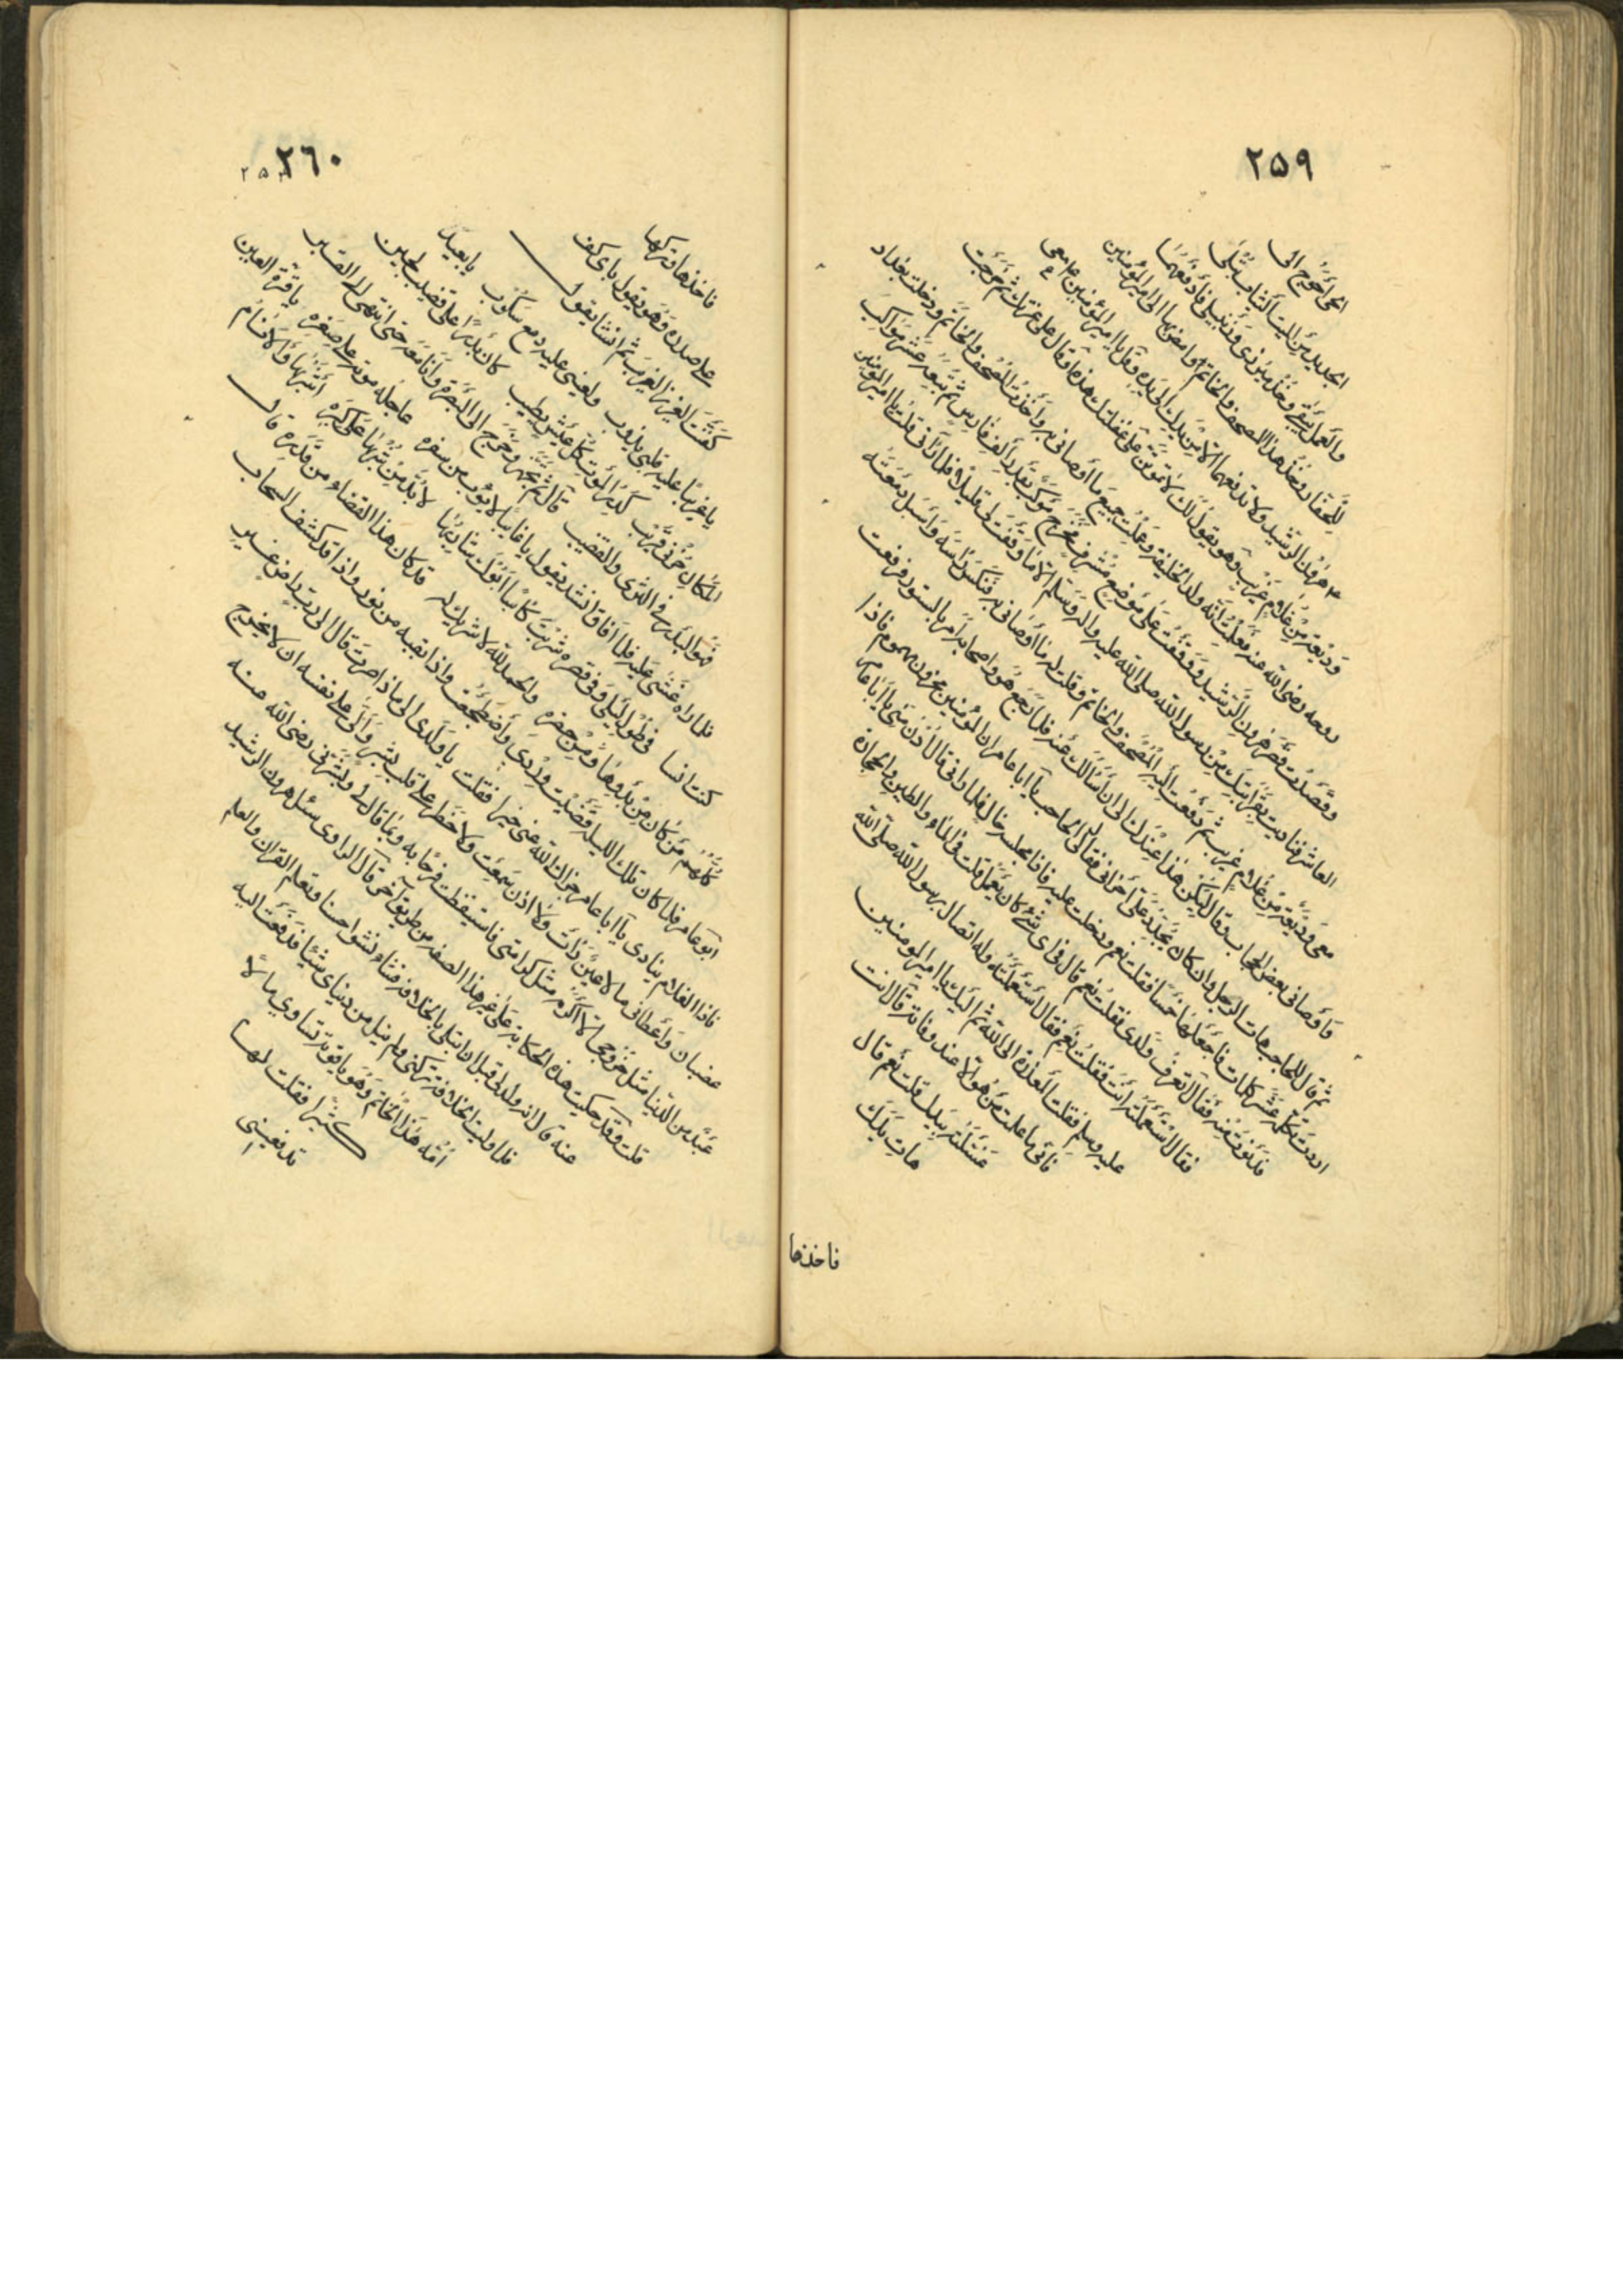 ٢٥٩
الحي أحوج الى
الجديد من الميت الثياب تبلى
والعمل يبقى وخذ مئزري وزنبيلي فادفعهما
للحفار وخذ هذا المصحف والخاتم وامض بهما الى امير المؤمنين
هرون الرشيد ولا تدفعهما الا من يدك الى يده وقل يا امير المؤمنين معي
وديعة من غلام غريب وهو يقول لك لا تموتن على غفلتك هذه
روحه رضي الله عنه فعلمت أنه ولد الخليفة وعملت جميع ما أوصاني به وأخذت المصحف والخاتم ودخلت بغداد
وقصدت قصر هرون الرشيد ووقفت على موضع مشرف فخرج موكب
العاشر فناديت بقرابتك من رسول الله صلى الله عليه وسلم الا ما وقفت لي قليلا فلما رآني قلت يا امير المؤمنين
معي وديعة من غلام غريب ثم دفعت اليه المصحف والخاتم وقلت له بما أوصاني به فنكس رأسه وأسبل دمعته
وأوصاني بعض الحجاب وقال ليكن هذا عندك الى أن أسألك عنه فلما رجع هو وأصحابه أمر بالستور فرفعت
ثم قال للحاجب هات الرجل وان كان يجدد علي أحزاني فقال لي الحاجب يا أبا عامر ان امير المؤمنين محزون مهموم فاذا
اردت تكلمه عشر كلمات فاجعلها خمسا فقلت نعم ودخلت عليه فاذا مجلسه خال فلما رآني قال ادن مني يا أبا عامر
فدنوت منه فقال أتعرف ولدي فقلت نعم قال في أي شيء كان يعمل قلت في الماء والطين والحجارة
فقال أستعملته أنت فقلت نعم فقال أستعملته وله اتصال برسول الله صلى الله
عليه وسلم فقلت المعذرة الى الله ثم اليك يا امير المؤمنين
فاني ما علمت من هو الا عند وفاته قال أنت
غسلته بيدك قلت نعم قال
هات يدك
فاخذها
٢٦٠
٢٥
فاخذها وتركها
على صدره وهو يقول بأي كف
كفنت العزيز الغريب ثم انشأ يقول
يا غريبا عليه قلبي يذوب ولعيني عليه دمع سكوب يا بعيد
المكان حزني قريب كدر الموت كل عيش يطيب كان بدرا على قضيب لجين
فهو البدر في الثرى والقضيب قال ثم تجهز وخرج الى البصرة وأنا معه حتى انتهى الى القبر
فلما رآه غشي عليه فلما أفاق انشد يقول يا غائبا لا يؤوب من سفره عاجله موته على صغره يا قرة العين
كنت انسا في طول ليلي وفي قصره شربت كاسا أبوك شاربها لا بد من شربها على كبره أشربها والأنام
كلهم من كان من بدوها ومن حضره والحمد لله لا شريك له قد كان هذا القضاء من قدره قال
ابو عامر فلما كان تلك الليلة قضيت وردي واضطجعت واذا بقبة من نور واذا قد كشف السحاب
فاذا الغلام ينادي يا أبا عامر جزاك الله عني خيرا فقلت يا ولدي الى ماذا صرت قال الى رب راض غير
غضبان وأعطاني ما لا عين رأت ولا اذن سمعت ولا خطر على قلب بشر وآلى على نفسه ان لا يخرج
عبد من الدنيا مثل خروجي الا أكرمه مثل كرامتي فاستيقظت فرحا به وبما قال لي وبشرني رضي الله عنه
قلت وقد حكيت هذه الحكاية على غير هذا الصفة من طريق آخر قال الراوي سئل هرون الرشيد
عنه قال انه ولد لي قبل ان ابتلى بالخلافة فنشأ نشوا حسنا وتعلم القرآن والعلم
فلما وليت الخلافة تركني ولم ينل من دنياي شيئا فدفعت اليه
أمه هذا الخاتم وهو ياقوتة تساوي مالا
كثيرا فقلت لها
تدفعيني